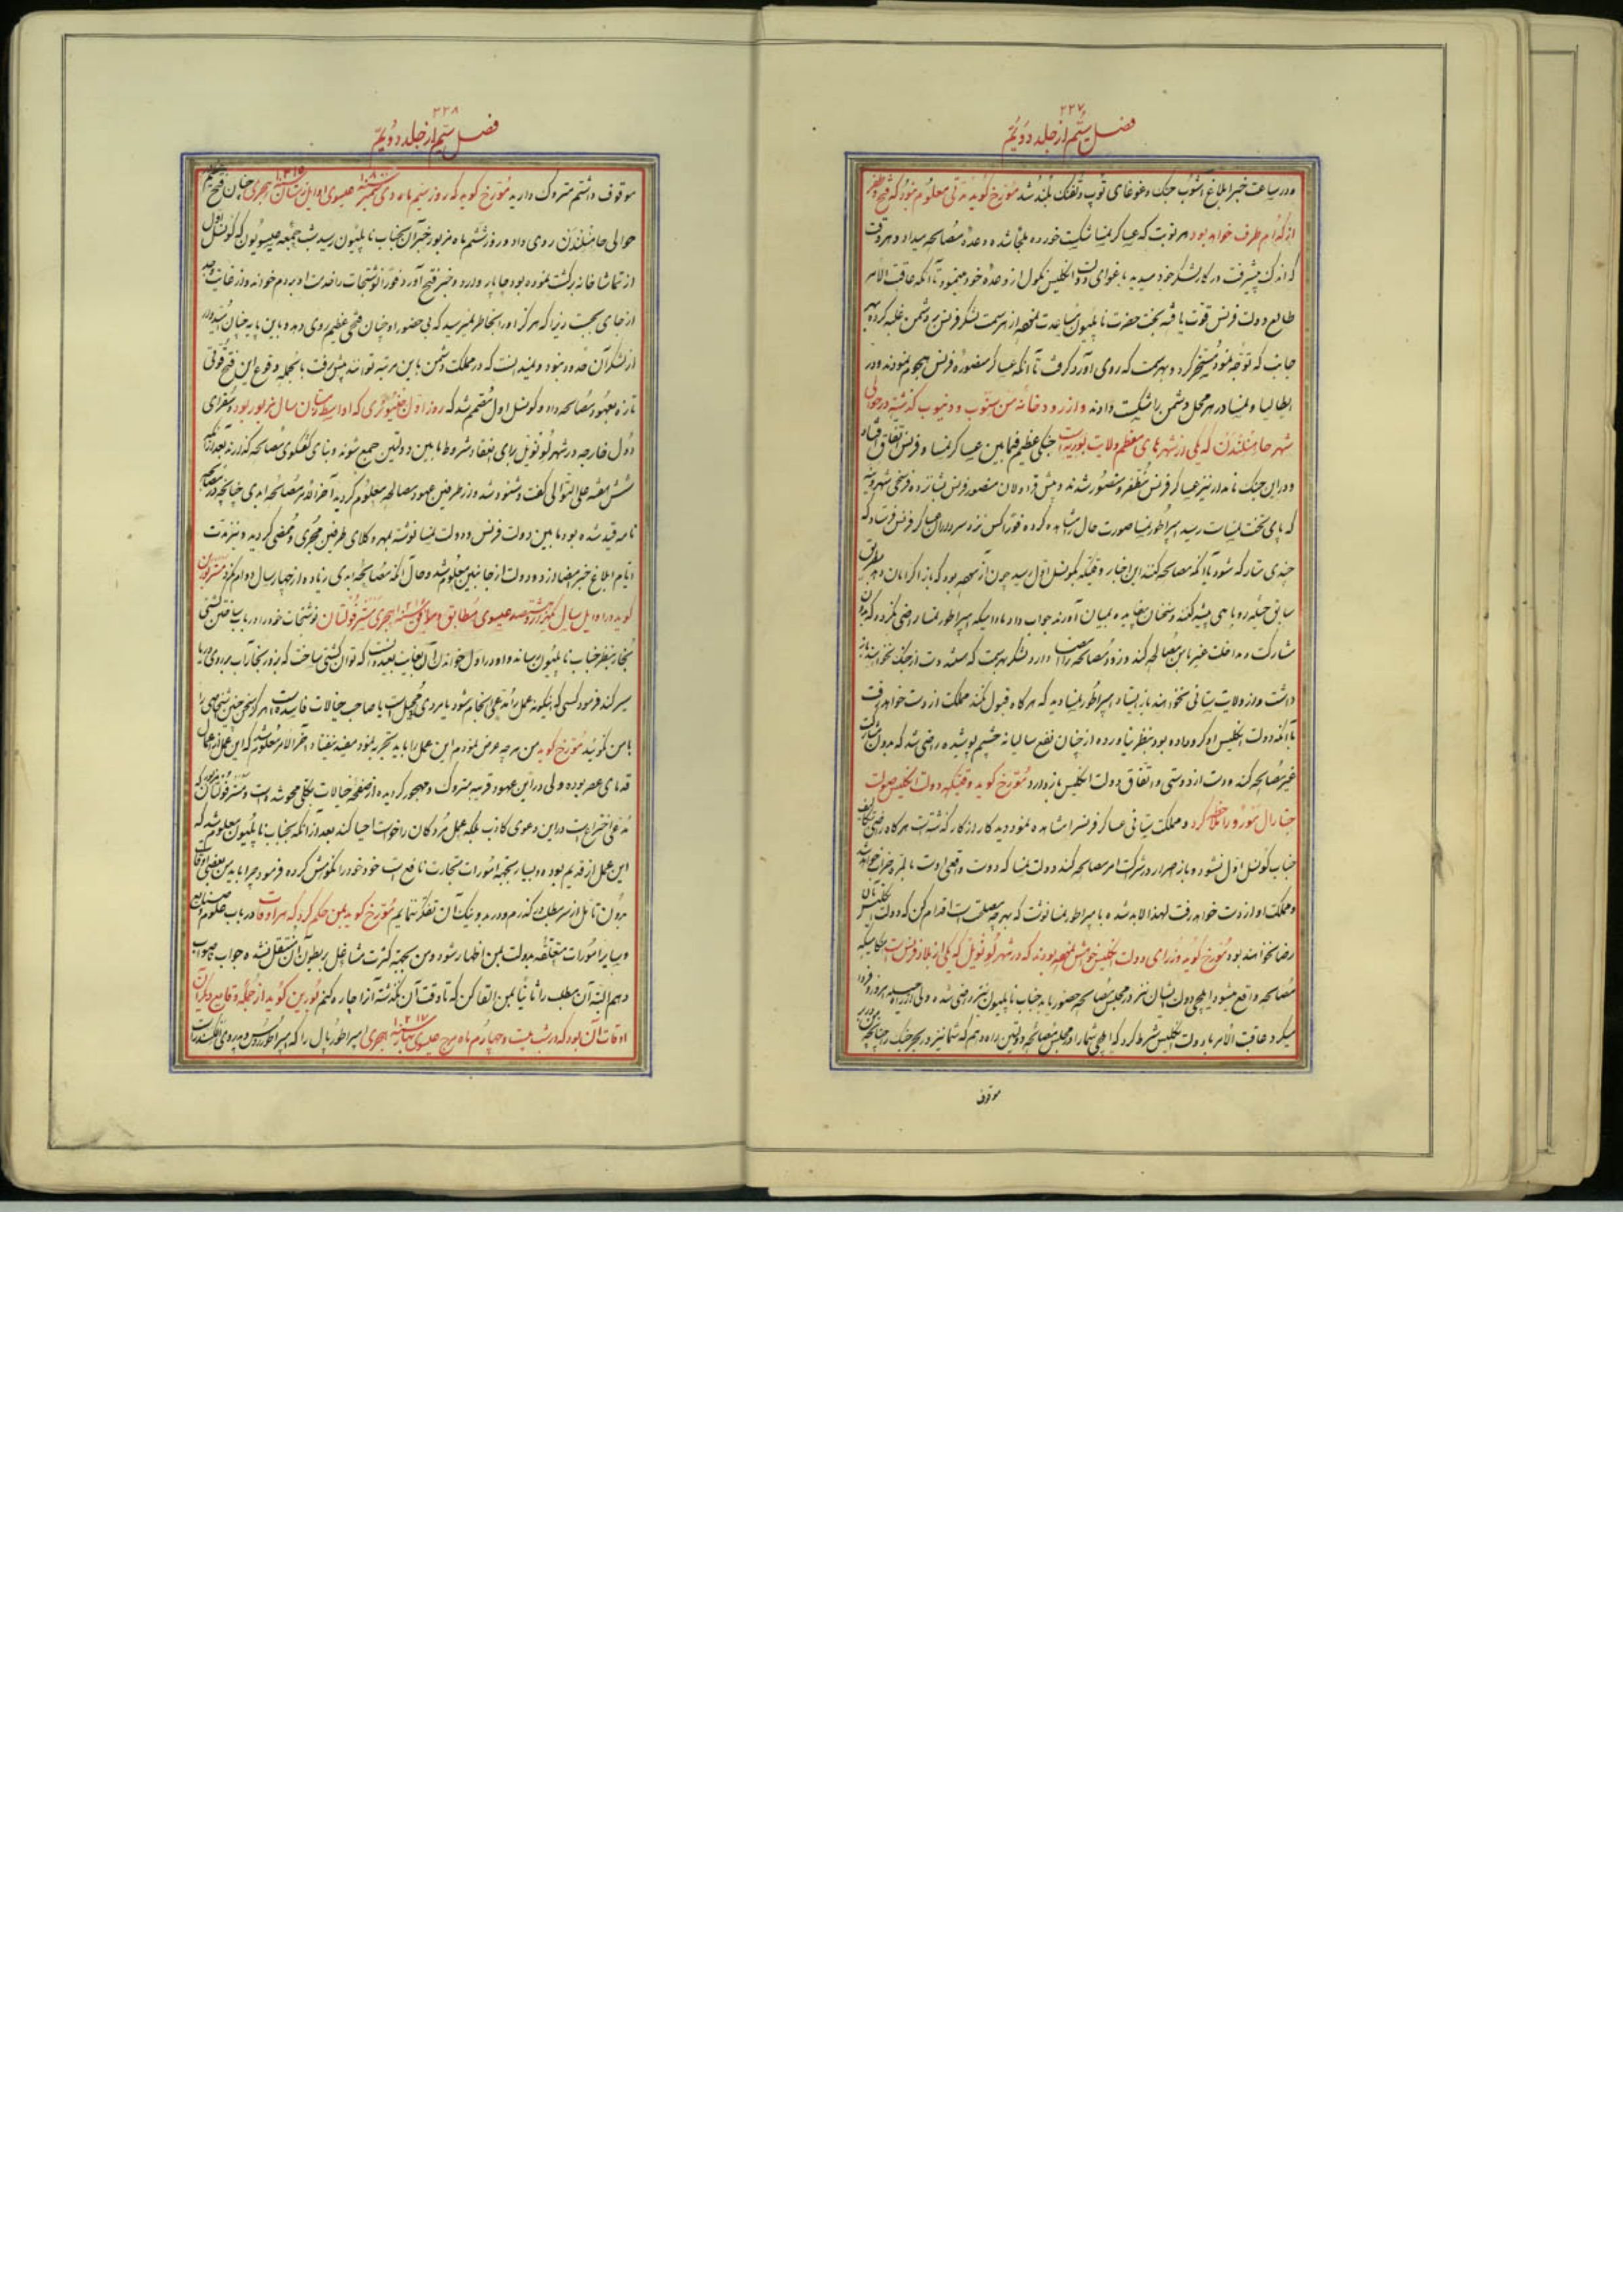 ۲۲۷
فصل ستم از جلد دویم
و در ساعت خبر ابلاغ آشوب جنک و غوغای توپ و تفنک بلند شد مورخ کوید مدتی معلوم نبود که فتح و ظفر
از کدام طرف خواهد بود هر نوبت که عساکر نمسا شکست خورده ملجا شده وعده مصالحه میداد و هر وقت
که اندک پیشرفت در کار لشکر خود میدید باغوای دولت انکلیس نکول از وعده خود مینمود تا آنکه عاقبت الامر
طالع دولت فرنس قوت یافته بخت حضرت ناپلیون مساعدت نموده از هر سمت لشکر فرنس بر دشمن غلبه کرده بهر
جانب که توجه نمود مسخر کرد و بهر سمت که روی آورد کرفت تا آنکه عساکر منصوره فرنس هجوم نمودند و در
ایطالیا و نمسا در هر محل دشمن را شکست دادند و از رودخانه من سئوب و دنیوب کذشته در حوالی
شهر حامنلندن که یکی از شهرهای معظم ولایت بوریه است جنکی عظیم فیما بین عساکر نمسا و فرنس اتفاق افتاد
و در این جنک نامدار نیز عساکر فرنس مظفر و منصور شدند و پیش قراولان منصور فرنس شانزده فرسخی شهر وینه
که پای تخت نمسا است رسید امپراطور نمسا صورت حال را مشاهده کرده فورا کس نزد سرداران عساکر فرنس فرستاد که
چندی متارکه شود تا آنکه مصالحه کنند این اخبار وقتیکه بکونسل اول رسید چون آزموده بود که باز اکر امان دهد بطریق
سابق حیله و روباهی پیشه کنند و سخنان بیفایده بمیان آورند جواب داد مادامیکه امپراطور نمسا راضی نکردد که بدون
مشارکت و مداخلت غیر با من مصالحه کند و زود مصالحه را امضا دارد لشکر بهر سمت که هستند دست از جنک نخواهند باز
داشت و از ولایت ستانی نخواهند باز ایستاد امپراطور نمسا دید که هرکاه قبول نکند مملکت از دست خواهد رفت
با آنکه دولت انکلیس او کرو داده بود بنظر نیاورده از چنان نفع سالیانه چشم پوشیده راضی شد که بدون مشارکت
غیر مصالحه کند و دست از دوستی و اتفاق دولت انکلیس باز دارد مورخ کوید وقتیکه دولت انکلیس صولت
جنارال مورو را ملاحظه کرد و مملکت ستانی عساکر فرنس را مشاهده نمود دید کار از کار کذشته است هرکاه راضی بتکلیف
جناب کونسل اول نشود و باز اصرار در شرکت امر مصالحه کند دولت نمسا که دوست واقعی اوست بالمره خراب خواهد شد
و مملکت او از دست خواهد رفت لهذا لابد شده با امپراطور نمسا نوشت که بهر چه مصلحت است اقدام کن که دولت انکلیس بآن
رضا نخواهند بود مورخ کوید وزرای دولت انکلیس خواهش نموده بودند که در شهر لونویل که یکی از بلاد فرنس است هنکامیکه
مصالحه واقع میشود ایلچی دولت ایشان نیز در مجلس مصالحه حضور یابد جناب ناپلیون نیز راضی شده ولی از راه حیله امروز و فردا
میکرد عاقبت الامر با دولت انکلیس شرط کرد که ایلچی شما را در مجلس مصالحه دولتین راه دهم که شما نیز در بحر جنک را چنانچه من در بر
موقوف
۲۲۸
فصل ستم از جلد دویم
موقوف داشتم متروک دارید مورخ کوید که روز سیم ماه دی سمبر سنه ۱۸۰۰ عیسوی اوایل زمستان سنه ۱۲۱۵ هجری چنان فتح عظیم
حوالی حامنلندن روی داد و روز ششم ماه مزبور خبر آن بجناب ناپلیون رسید شب جمعه عیسویون که کونسل اول
از تماشاخانه برکشت نموده بود چاپار وارد و خبر فتح آورد فورا نوشتجات را خدمت او بردم خواند و از غایت وجد
از جای بجست زیرا که هرکز او را بخاطر نمیرسید که بی حضور او چنان فتحی عظیم روی دهد و باین پایه چنان امید در
از لشکر آن حدود نبود و نمیدانست که در مملکت دشمن باین مرتبه توانند پیش رفت بالجمله وقوع این فتح قوتی
تازه بعهود مصالحه داد و کونسل اول مصمم شد که روز اول جنیوئری که اواسط زمستان سال مزبور بود و سفرای
دول خارجه در شهر لونویل برای انعقاد شروط مابین دولتین جمع شوند و بنای کفتکوی مصالحه کذارند بعد از آنکه
شش هفته علی التوالی کفت و شنود شد و از طرفین عهود مصالحه معلوم کردید آخر الامر مصالحه ابدی چنانچه در مصالحه
نامه قید شده بود مابین دولت فرنس و دولت نمسا نوشته بمهر وکلای طرفین مجری و ممضی کردید و نیز مدت
ایام ابلاغ خبر مضا از دو دولت از جانبین معلوم شد و حال آنکه مصالحه ابدی زیاده از چهار سال دوام نکرد مستر بورین
کوید در اوایل سال یکهزار و هشتصد عیسوی مطابق و موافق سنه ۱۲۱۵ هجری مستر فولتان نوشتجات خود را در باب ساختن کشتی
بخار بنظر جناب ناپلیون رسانید و او در اول خواندن آن بغایت بعید دانست که توان کشتی ساخت که بزور بخار آب بر روی دریا
سیر کند فرمود کسی که اینکونه عمل را مدعی انجام شود یا مردی مجهل است یا صاحب خیالات فاسده است هرکز سخن چنین شخصی را
با من نکوئید مورخ کوید من هر چه عرض نمودم این عمل را باید تجربه نمود مفید نیفتاد آخر الامر معلوم شد که این عمل از اعمال
قدمای عصر بوده ولی در این عهود قریبه متروک و مهجور کردیده از صفحه خیالات بکلی محو شده است و مستر فولتان که
مدعی اختراع است در این دعوی کاذب بلکه عمل مردکان را خواست احیا کند بعد از آنکه بجناب ناپلیون معلوم شد که
این عمل از قدیم بوده و بسیار بجهة امورات تجارت نافع است خود خود را نکوهش کرده فرمود چرا باید من بعضی اوقات
بدون تامل از سر مطلب در کذرم و در بد و نیک آن تفکر ننمایم مورخ کوید بمن حکم کرد که هر اوقات در باب علوم و صنایع
و سایر امورات متعلقه بدولت بمن اظهار شود و من بجهة کثرت مشاغل بر بطون آن منتقل نشده جواب ناصواب
دهم البته آن مطلب را ثانیا بمن القا کن که تا وقت آن نکذشته آنرا چاره کنم بورین کوید از جمله وقایع دیکر آن
اوقات آن بود که در شب بیست و چهارم ماه مرچ عیسوی بهار سنه ۱۲۱۷ هجری امپراطور پال را که امپراطور روس و پدر وی الکسندر است